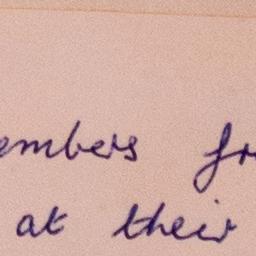 embers fr
at their